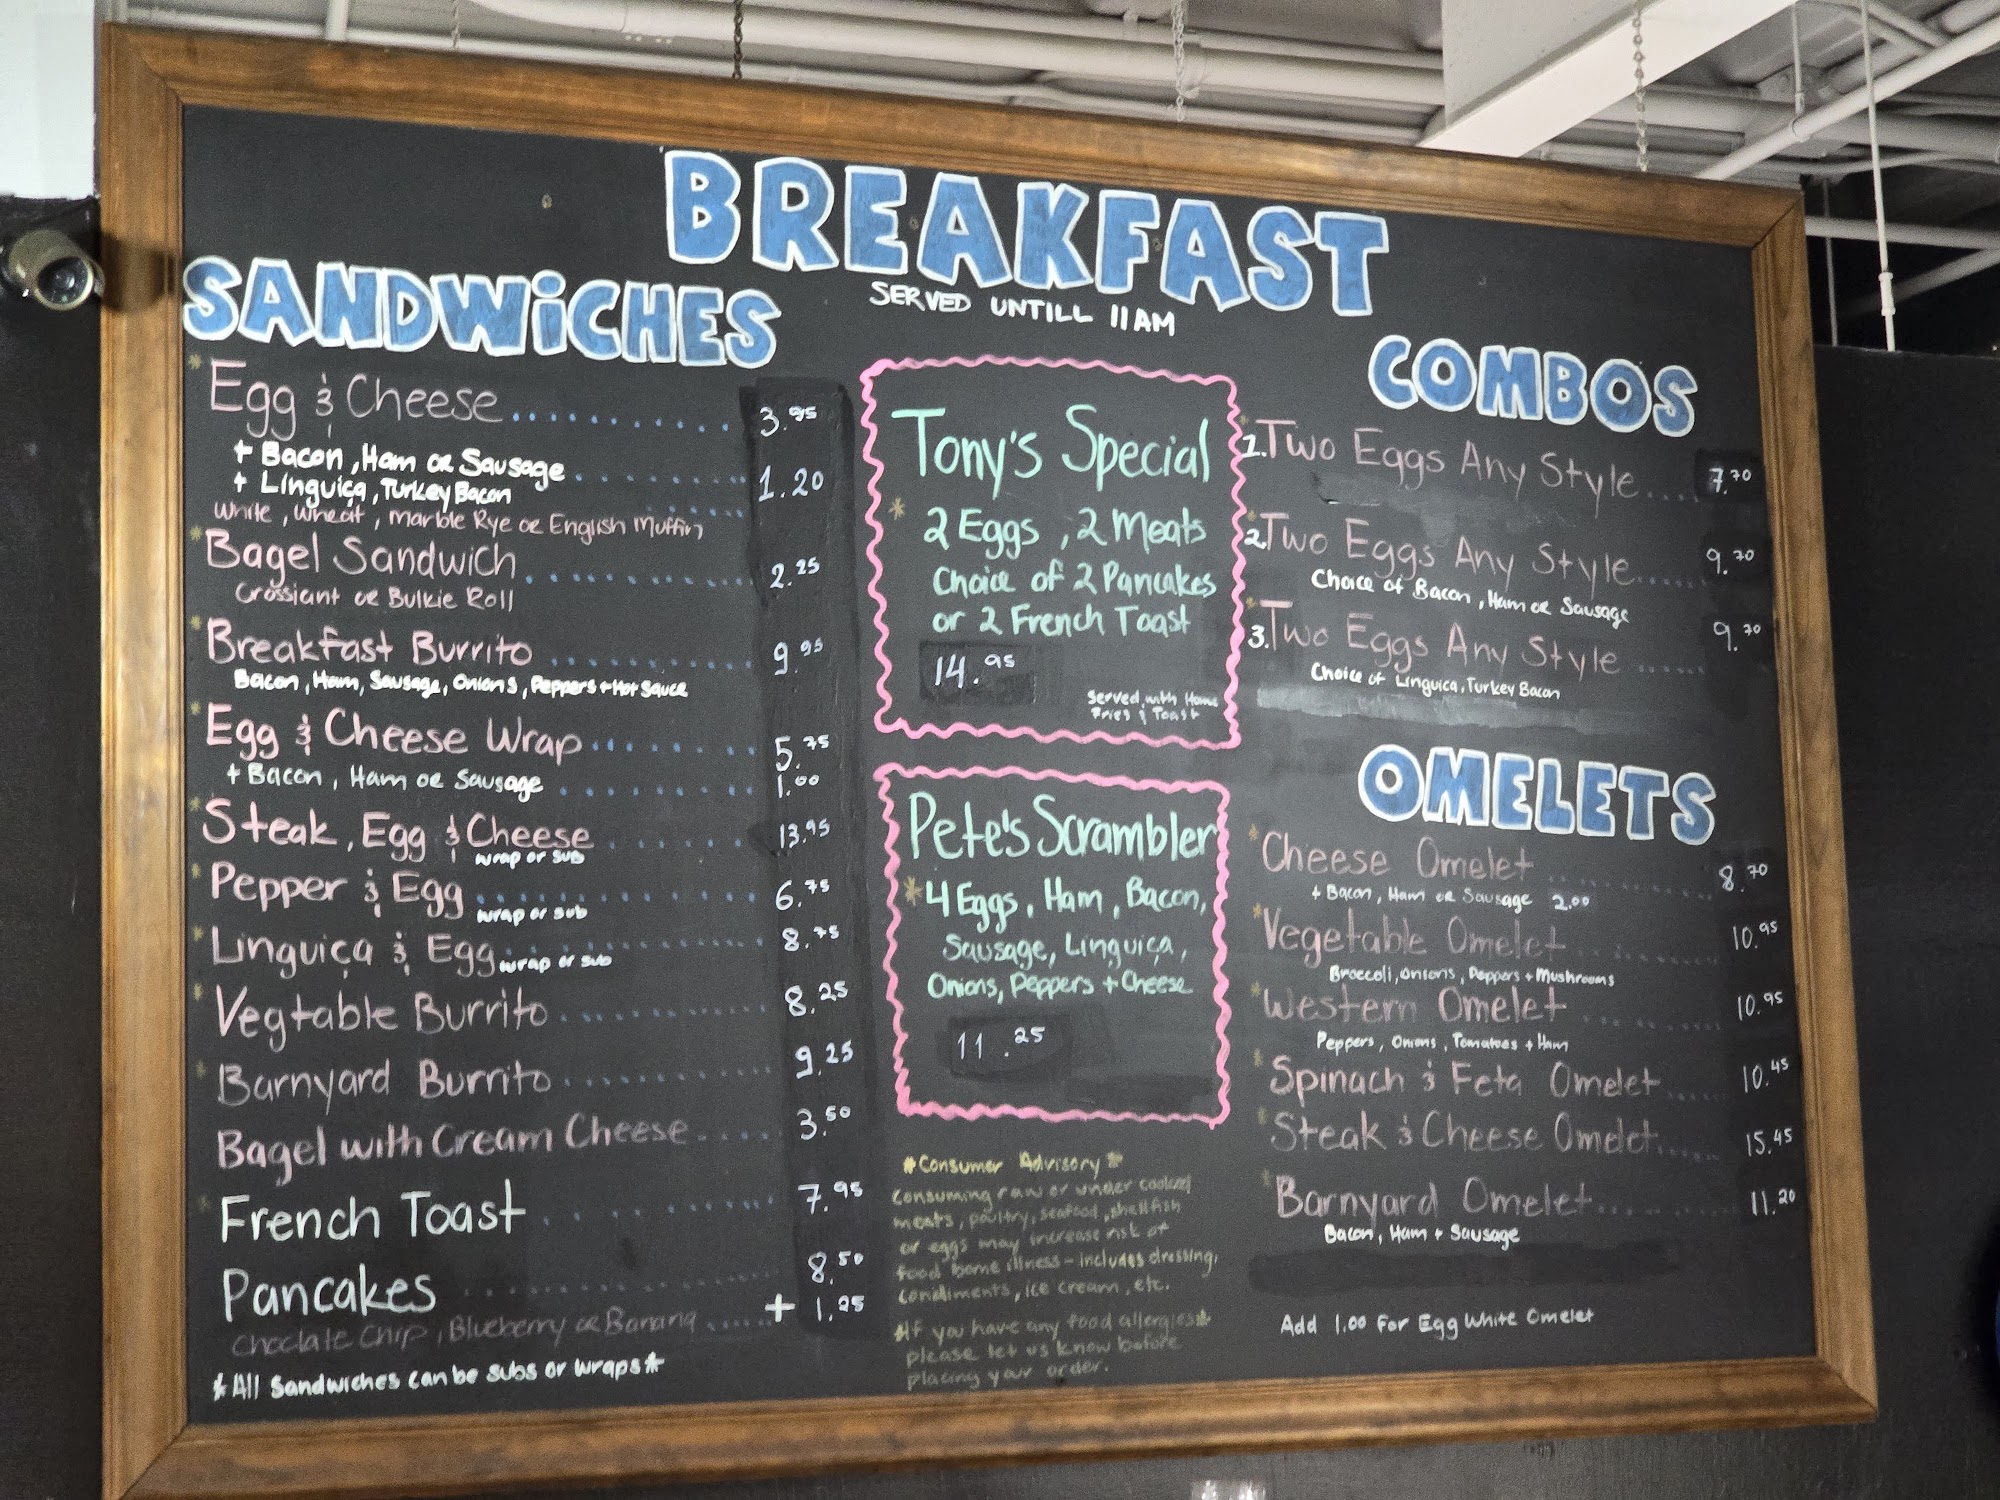 BREAKFAST
SERVED UNTILL 11AM
SANDWiCHES
* Egg & Cheese.......... 3.95
+ Bacon, Ham or Sausage.......... 1.20
+ Linguiça, Turkey Bacon
White, Wheat, Marble Rye or English Muffin
* Bagel Sandwich.......... 2.25
Crossiant or Bulkie Roll
* Breakfast Burrito.......... 9.95
Bacon, Ham, Sausage, Onions, Peppers + Hot Sauce
* Egg & Cheese Wrap.......... 5.75
+ Bacon, Ham or Sausage.......... 1.00
* Steak, Egg & Cheese.......... 13.95
wrap or sub
* Pepper & Egg.......... 6.75
wrap or sub
* Linguiça & Egg.......... 8.75
wrap or sub
* Vegtable Burrito.......... 8.25
* Barnyard Burrito.......... 9.25
Bagel with Cream Cheese.......... 3.50
* French Toast.......... 7.95
Pancakes.......... 8.50
Choclate Chip, Blueberry or Banana...... + 1.25
*All Sandwiches can be subs or wraps*
Tony's Special
* 2 Eggs, 2 Meats
Choice of 2 Pancakes
or 2 French Toast
14.95
Served with Home
Fries & Toast
Pete's Scrambler
* 4 Eggs, Ham, Bacon,
Sausage, Linguiça,
Onions, Peppers + Cheese
11.25
*Consumer Advisory*
Consuming raw or under cooked
meats, poultry, seafood, shellfish
or eggs may increase risk of
food borne illness - includes dressing,
condiments, ice cream, etc.
*If you have any food allergies*
please let us know before
placing your order.
COMBOS
* 1. Two Eggs Any Style.... 7.70
* 2. Two Eggs Any Style...... 9.70
Choice of Bacon, Ham or Sausage
* 3. Two Eggs Any Style...... 9.70
Choice of Linguica, Turkey Bacon
OMELETS
* Cheese Omelet.......... 8.70
+ Bacon, Ham or Sausage 2.00
* Vegetable Omelet.......... 10.95
Broccoli, Onions, Peppers + Mushrooms
* Western Omelet.......... 10.95
Peppers, Onions, Tomatoes + Ham
* Spinach & Feta Omelet..... 10.45
* Steak & Cheese Omelet..... 15.45
* Barnyard Omelet.......... 11.20
Bacon, Ham + Sausage
Add 1.00 For Egg White Omelet